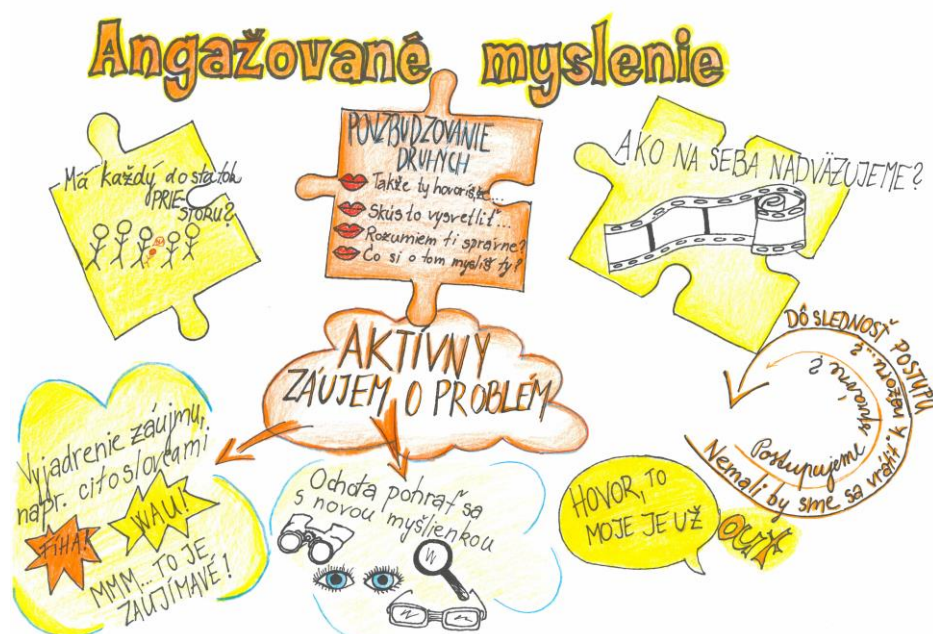 Angažované myslenie
Má každý dostatok
PRIE-
STORU?
POVZBUDZOVANIE
DRUHÝCH
Takže ty hovoríš, že...
Skús to vysvetliť...
Rozumiem ti správne?
Čo si o tom myslíš ty?
AKO NA SEBA NADVÄZUJEME?
AKTÍVNY
ZÁUJEM O PROBLÉM
DÔSLEDNOSŤ POSTUPU
Postupujeme správne?
Nemali by sme sa vrátiť k názoru...?
Vyjadrenie záujmu,
napr. citoslovcami
FÍHA!
WAU!
MMM... TO JE
ZAUJÍMAVÉ!
Ochota pohrať sa
s novou myšlienkou
HOVOR, TO
MOJE JE UŽ
OUT